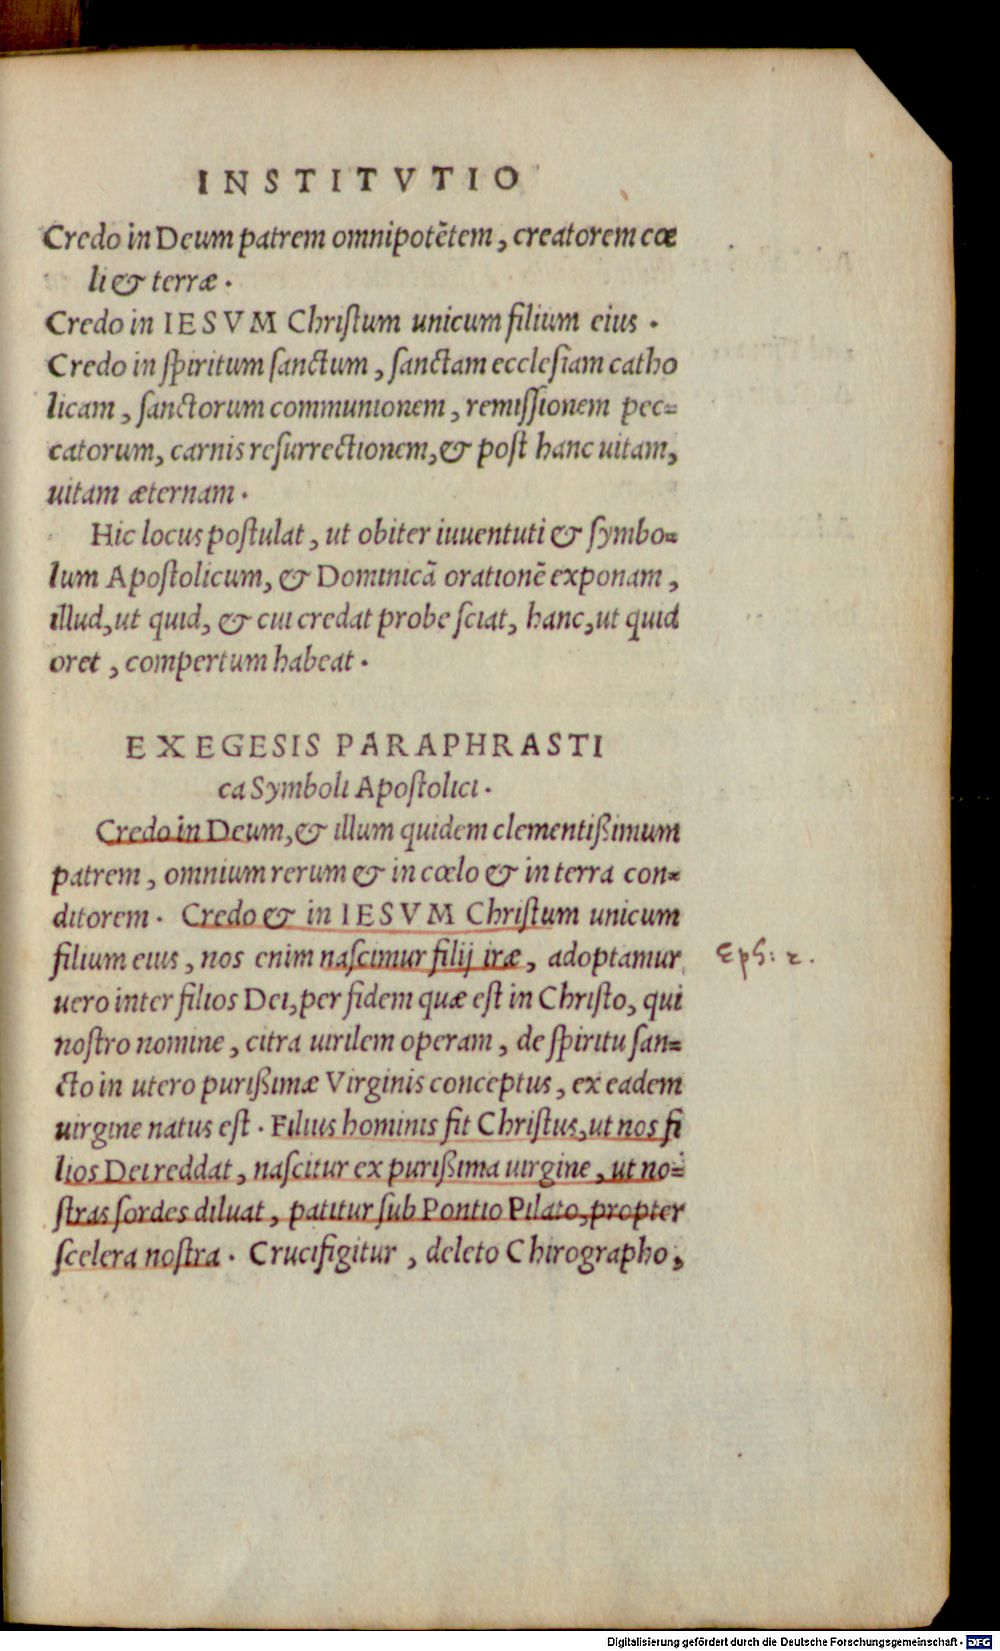 INSTITVTIO
Credo in Deum patrem omnipotẽtem, creatorem cœ
li & terræ.
Credo in IESVM Christum unicum filium eius.
Credo in spiritum sanctum, sanctam ecclesiam catho
licam, sanctorum communionem, remissionem pec-
catorum, carnis resurrectionem, & post hanc uitam,
uitam æternam.
Hic locus postulat, ut obiter iuuentuti & symbo-
lum Apostolicum, & Dominicã orationẽ exponam,
illud, ut quid, & cui credat probe sciat, hanc, ut quid
oret, compertum habeat.
EXEGESIS PARAPHRASTI
ca Symboli Apostolici.
Credo in Deum, & illum quidem clementißimum
patrem, omnium rerum & in cœlo & in terra con-
ditorem. Credo & in IESVM Christum unicum
filium eius, nos enim nascimur filij iræ, adoptamur
Eph: 2.
uero inter filios Dei, per fidem quæ est in Christo, qui
nostro nomine, citra uirilem operam, de spiritu san-
cto in utero purißimæ Virginis conceptus, ex eadem
uirgine natus est. Filius hominis fit Christus, ut nos fi
lios Dei reddat, nascitur ex purißima uirgine, ut no-
stras sordes diluat, patitur sub Pontio Pilato, propter
scelera nostra. Crucifigitur, deleto Chirographo,
Digitalisierung gefördert durch die Deutsche Forschungsgemeinschaft - DFG